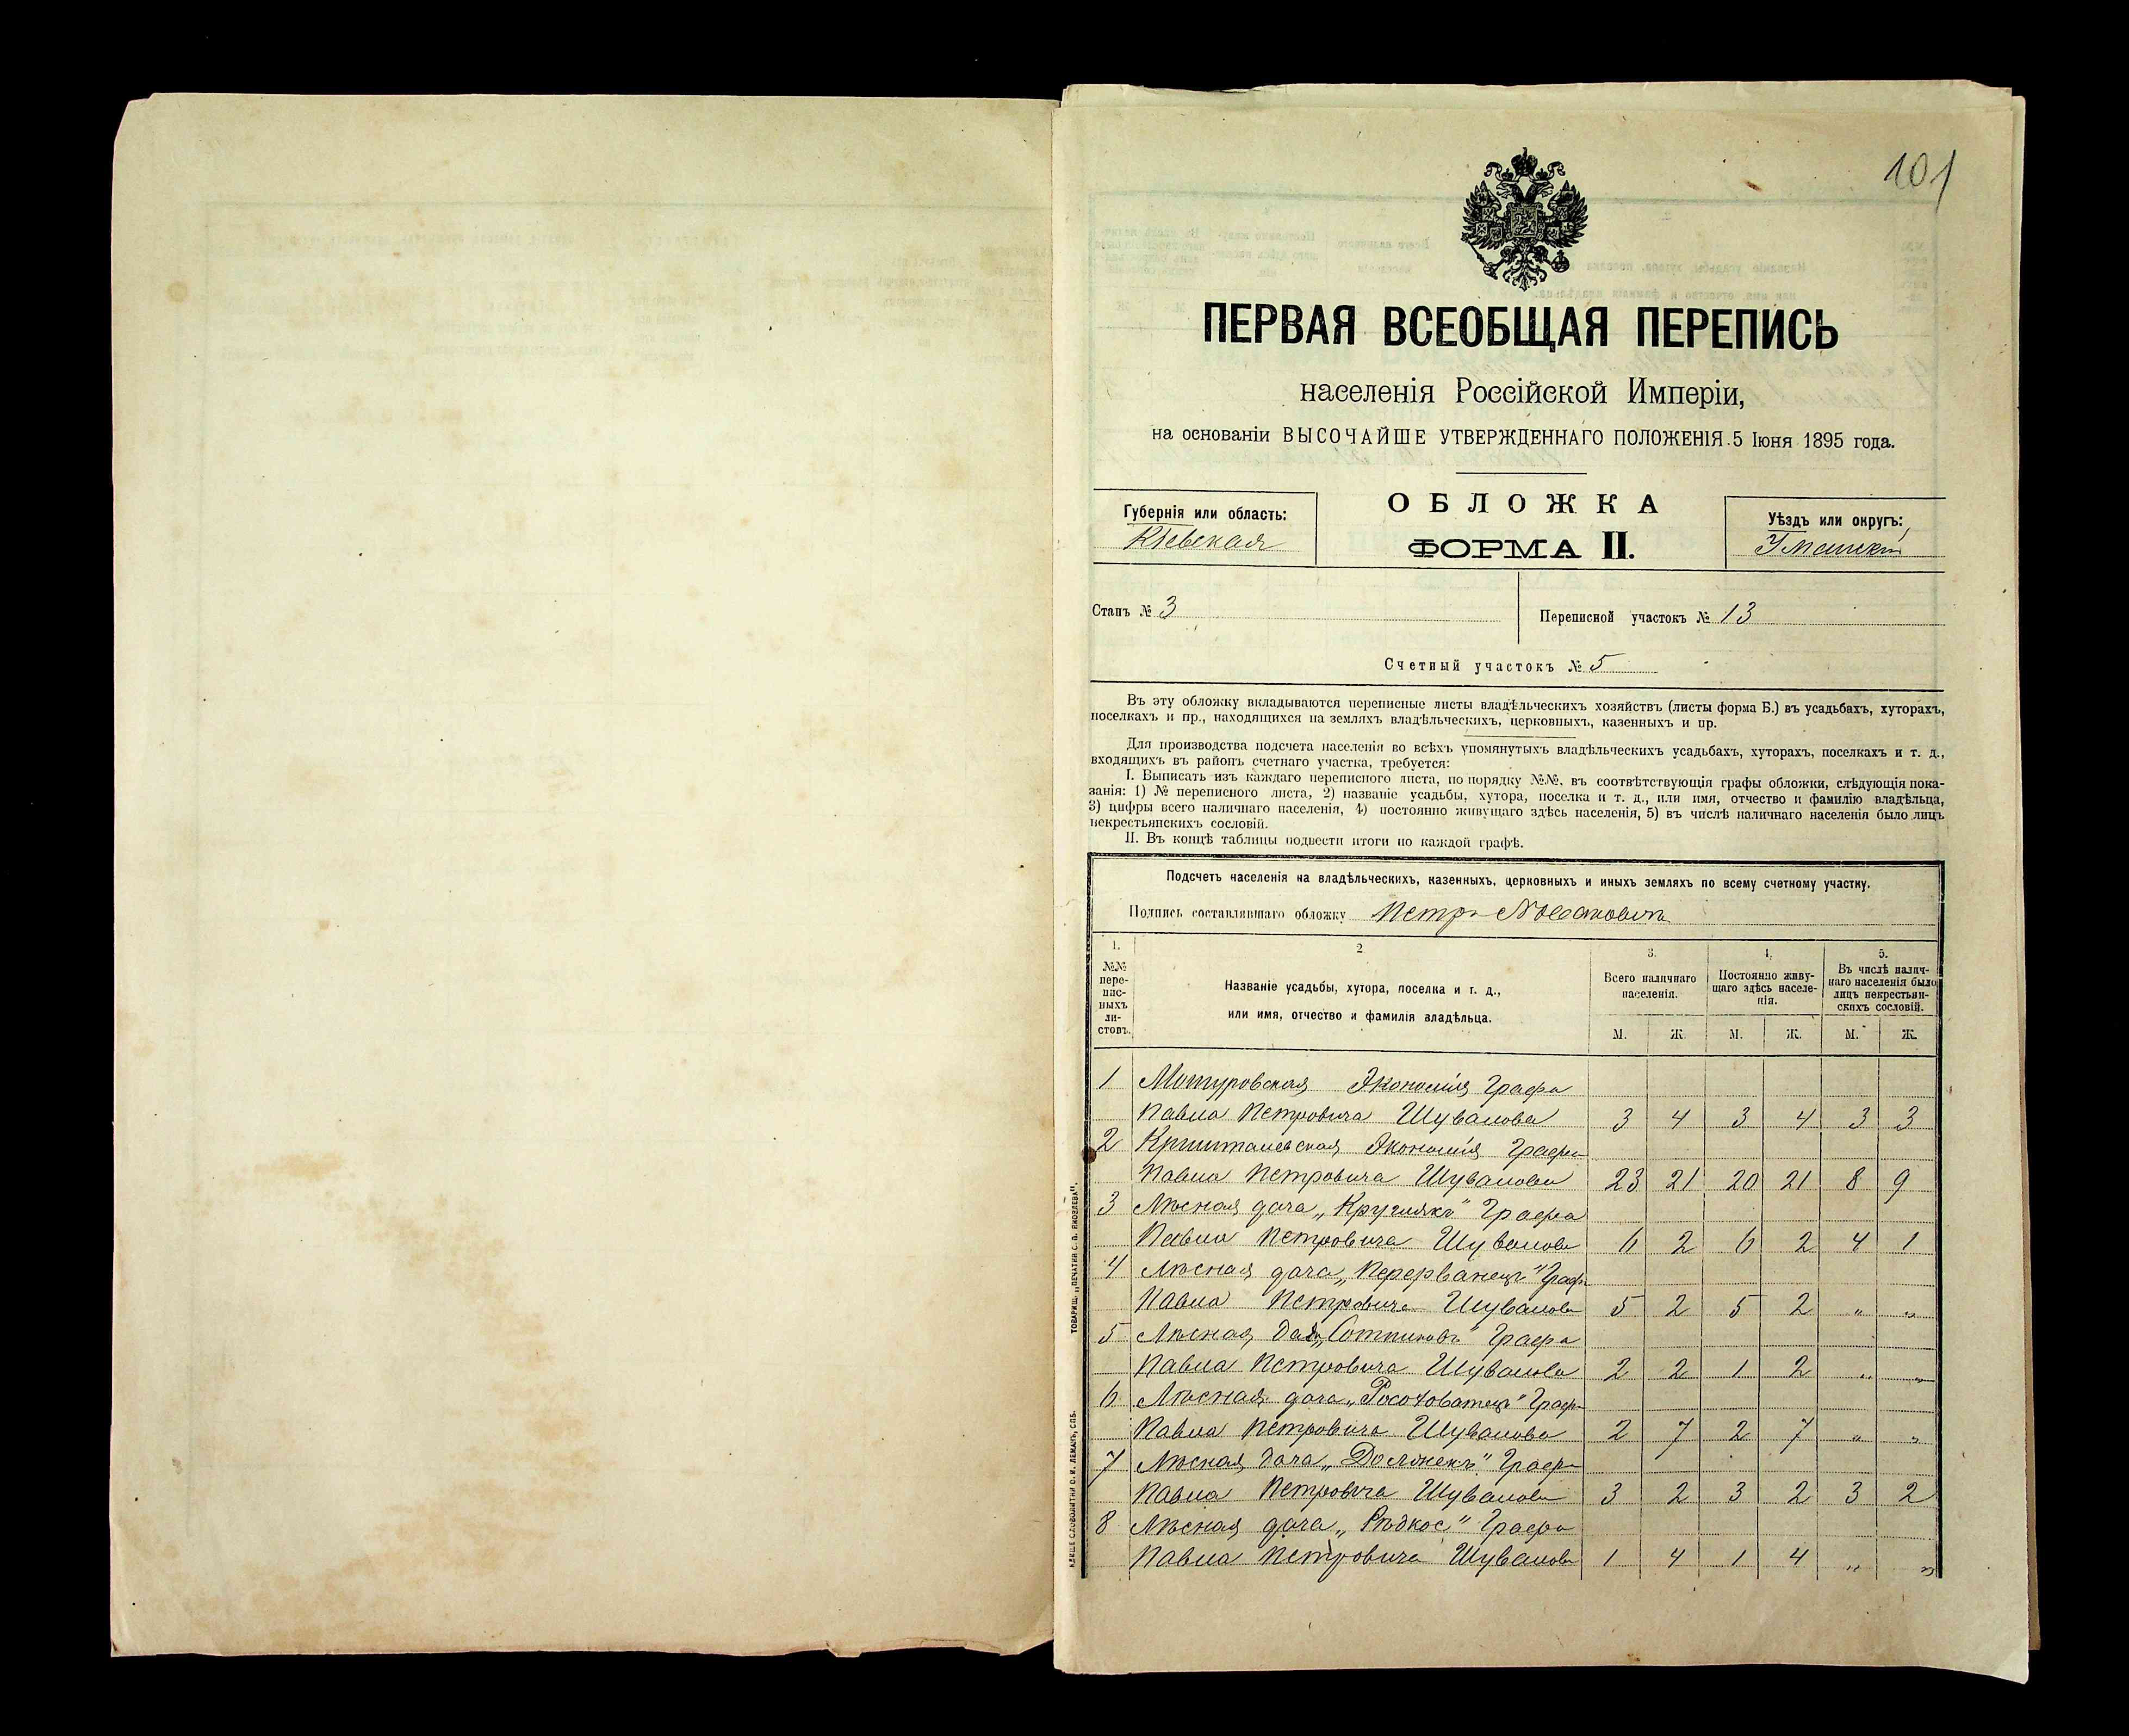 101
ПЕРВАЯ ВСЕОБЩАЯ ПЕРЕПИСЬ
населенія Россійской Имперіи,
на основаніи ВЫСОЧАЙШЕ УТВЕРЖДЕННАГО ПОЛОЖЕНІЯ 5 Іюня 1895 года.
Губернія или область:
Кіевская
ОБЛОЖКА
ФОРМА II.
Уѣздъ или округъ:
Уманскій
Станъ № 3
Переписной участокъ № 13
Счетный участокъ № 5
Въ эту обложку вкладываются переписные листы владѣльческихъ хозяйствъ (листы форма Б.) въ усадьбахъ, хуторахъ,
поселкахъ и пр., находящихся на земляхъ владѣльческихъ, церковныхъ, казенныхъ и пр.
Для производства подсчета населенія во всѣхъ упомянутыхъ владѣльческихъ усадьбахъ, хуторахъ, поселкахъ и т. д.,
входящихъ въ районъ счетнаго участка, требуется:
I. Выписать изъ каждаго переписного листа, по порядку №№, въ соотвѣтствующія графы обложки, слѣдующія пока-
занія: 1) № переписного листа, 2) названіе усадьбы, хутора, поселка и т. д., или имя, отчество и фамилію владѣльца,
3) цифры всего наличнаго населенія, 4) постоянно живущаго здѣсь населенія, 5) въ числѣ наличнаго населенія было лицъ
некрестьянскихъ сословій.
II. Въ концѣ таблицы подвести итоги по каждой графѣ.
Подсчетъ населенія на владѣльческихъ, казенныхъ, церковныхъ и иныхъ земляхъ по всему счетному участку.
Подпись составлявшаго обложку Петръ
1. 2 3. 4. 5.
№№ пере-пис-ныхъ ли-стовъ.
Названіе усадьбы, хутора, поселка и т. д.,
или имя, отчество и фамилія владѣльца.
Всего наличнаго населенія.
Постоянно живу-щаго здѣсь населе-нія.
Въ числѣ налич-наго населенія было лицъ некрестьян-скихъ сословій.
М. Ж. М. Ж. М. Ж.
1 Экономія Графа
Павла Петровича Шувалова 3 4 3 4 3 3
2 Кришталевская Экономія Графа
Павла Петровича Шувалова 23 21 20 21 8 9
3 Лѣсная дача „Круглякъ" Графа
Павла Петровича Шувалова 6 2 6 2 4 1
4 Лѣсная дача „Перерванецъ" Графа
Павла Петровича Шувалова 5 2 5 2 „ „
5 Лѣсная Дача „Сотниковъ" Графа
Павла Петровича Шувалова 2 2 1 2 „ „
6 Лѣсная дача „Росоховатецъ" Графа
Павла Петровича Шувалова 2 7 2 7 „ „
7 Лѣсная Дача Графа
Павла Петровича Шувалова 3 2 3 2 3 2
8 Лѣсная дача „Рѣдкое" Графа
Павла Петровича Шувалова 1 4 1 4 „ „